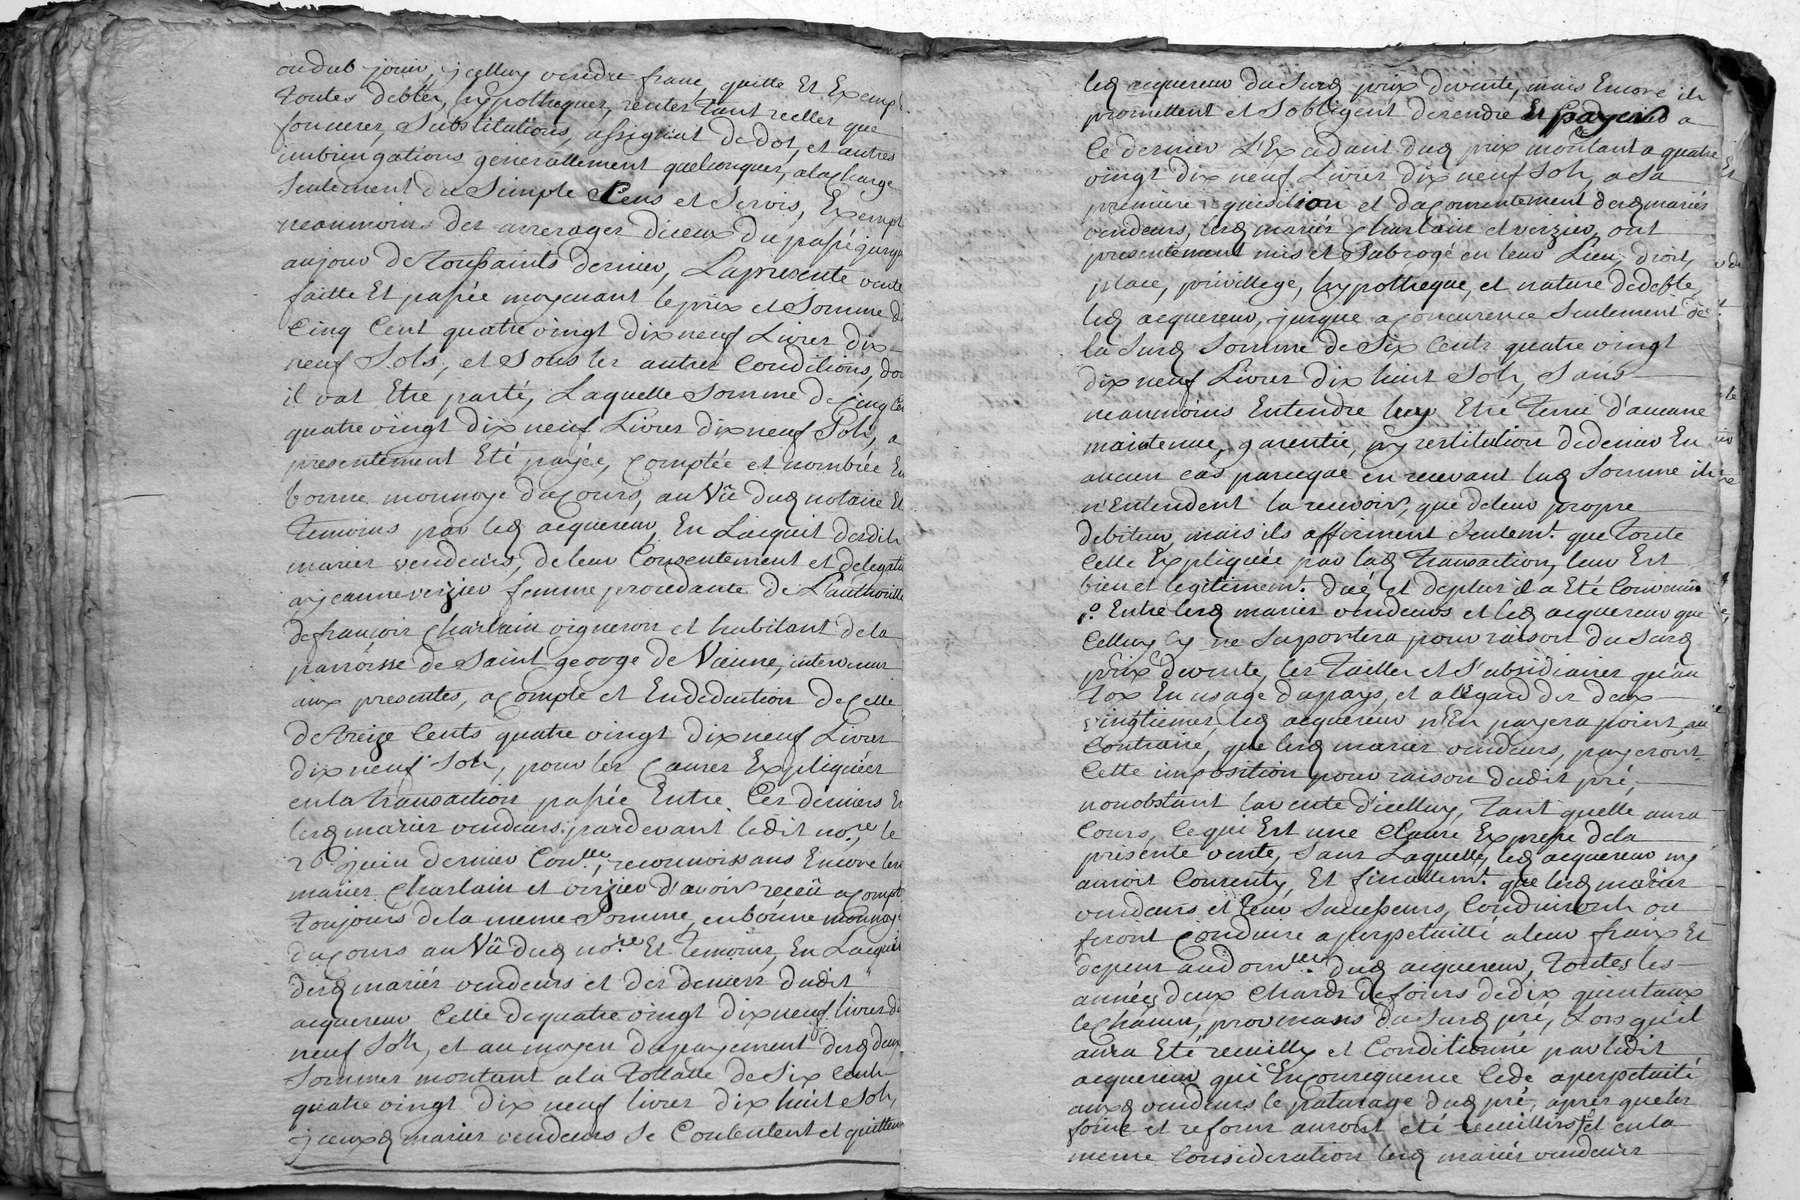 oudub jouir, jcelluy vendre franc, quitte Et Exempt
Toutes debtes, hypotheques, rentes Tant reelles que
foncieres, Substitutions, assignat de dot, et autres
imbringations generallement quelconques, a la charge
Seulement du Simple Cens et Servis, Exempt
neanmoins des arrerages diceux du passé jusqu
aujour de Toussaints dernier, La presente vente
faitte Et passée moyenant le prix et Somme de
Cinq Cent quatre vingt dix neuf Livres dix
neuf Sols, et Sous les autres Conditions, don
il vat Etre parlé, Laquelle Somme de Cinq Cen
quatre vingt dix neuf Livres dix neuf Sols, a
presentement Eté payée, Comptée et nombrée En
bonne monnoye du Cours, au Vû dud notaire Et
Temoins par led acquereur, En Lacquit desdits
mariés vendeurs, de leur Consentement et delegation
a jeanne verzier femme procedante de L'authorité
de françois Charlain vigneron et habitant de la
parroisse de Saint george de Vienne, intervenus
aux presentes, a Compte et En deduction de Celle
de Treize Cents quatre vingt dix neuf Livres
dix neuf Sols, pour les Causes Expliquées
en la Transaction passée Entre Ces derniers Et
lesd mariés vendeurs pardevant ledit no.re le
26e juin dernier Con.llée, reconnoissans Encore les
mariés Charlain et verzier d'avoir receû a compte
Toujours de la meme Somme, en bonne monnoye
du Cours au Vû dud no.re Et Temoins, En Lacquit
desd mariés vendeurs et des deniers dudit
acquereur Celle de quatre vingt dix neuf livres dix
neuf Sols, et au moyen du payement desd deux
Sommes montant a la Tottalle de Six Cents
quatre vingt dix neuf livres dix huit Sols,
jceux d mariés vendeurs Se Contentent et quittent
led acquereur du Surd prix de vente, mais Encore ils
promettent et S'obligent de rendre et payer a
Ce dernier L'Excedant dud prix montant a quatre
vingt dix neuf Livres dix neuf Sols, a Sa
premiere requisition et du Consentement desd mariés
vendeurs, lesd mariés Charlain et verzier, ont
presentement mis et Subrogé en leur Lieu, droit,
place, privillege, hypotheque, et nature de debte
led acquereur, jusque a Concurence Seulement de
la Surd Somme de Six Cents quatre vingt
dix neuf Livres dix huit Sols, Sans
neanmoins Entendre luy Etre Tenu d'aucune
maintenue, garentie, ny restitution de denier En
aucun cas parceque en recevant lad Somme ils
n'Entendent la recevoir, que de leur propre
debiteur, mais ils afforment Seulem.t que Toute
Celle Expliquée par lad Transaction, leur Est
bien et legitiment. duë, et de plus il a Eté Convenu
1.o Entre lesd mariés vendeurs et led acquereur que
Celluy Cy ne Suportera pour raison du Surd
prix de vente, les Tailles et Subsidiaires qu'au
Tox En usage du pays, et a l'Egard des deux
vingtiemes led acquereur n'En payera point, au
Contraire, que lesd mariés vendeurs, payeront
Cette imposition pour raison dudit pré,
nonobstant la vente d'icelluy, Tant quelle aura
Cours, Ce qui Est une Clause Expresse de la
présente vente, Sans Laquelle, led acquereur ny
auroit Consenty, Et finallem.t que lesd mariés
vendeurs et leur Successeurs, Conduiront ou
feront Conduire a perpetuitté a leur fraix Et
depens au dom.lle dud acquereur, Toutes les
années, deux Chards de foins de dix quentaux
le Chacun, provenans du Surd pré, Lors qu'il
aura Eté recuilly et Conditionné par ledit
acquereur qui En Consequence Cede a perpetuité
aux d vendeurs le paturage dud pré, apres que les
foins et refoins auront eté recuillirs, Et en la
meme Consideration lesd mariés vendeurs